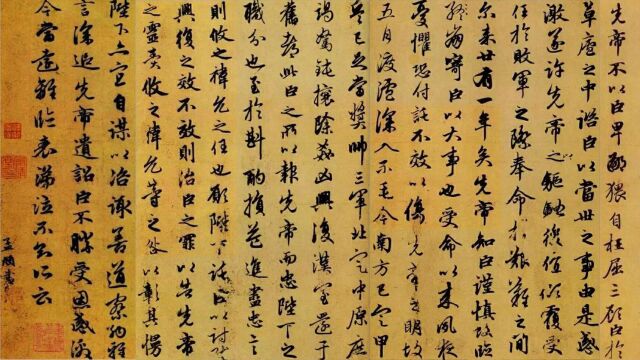 先帝不以臣卑鄙猥自枉屈三顧臣於
草廬之中諮臣以當世之事由是感
激遂許先帝之驅馳後值傾覆受
任於敗軍之際奉命於艱難之間
尔来廿有一年矣先帝知臣謹慎故臨
終崩寄臣以大事也受命以来夙夜
憂懼恐付託不效以傷先帝之明故
五月渡瀘深入不毛今南方已定甲
兵已足當獎帥三軍北定中原庶
竭駑鈍攘除姦凶興復漢室還于
舊都此臣之所以報先帝而忠陛下之
職分也至於斟酌損益進盡忠言
則攸之禕允之任也願陛下託臣以討賊
興復之效不效則治臣之罪以告先帝
之靈責攸之禕允等之咎以彰其慢
陛下亦宜自謀以咨諏善道察納雅
言深追先帝遺詔臣不勝受恩感激
今當遠離臨表涕泣不知所云
孟頫書